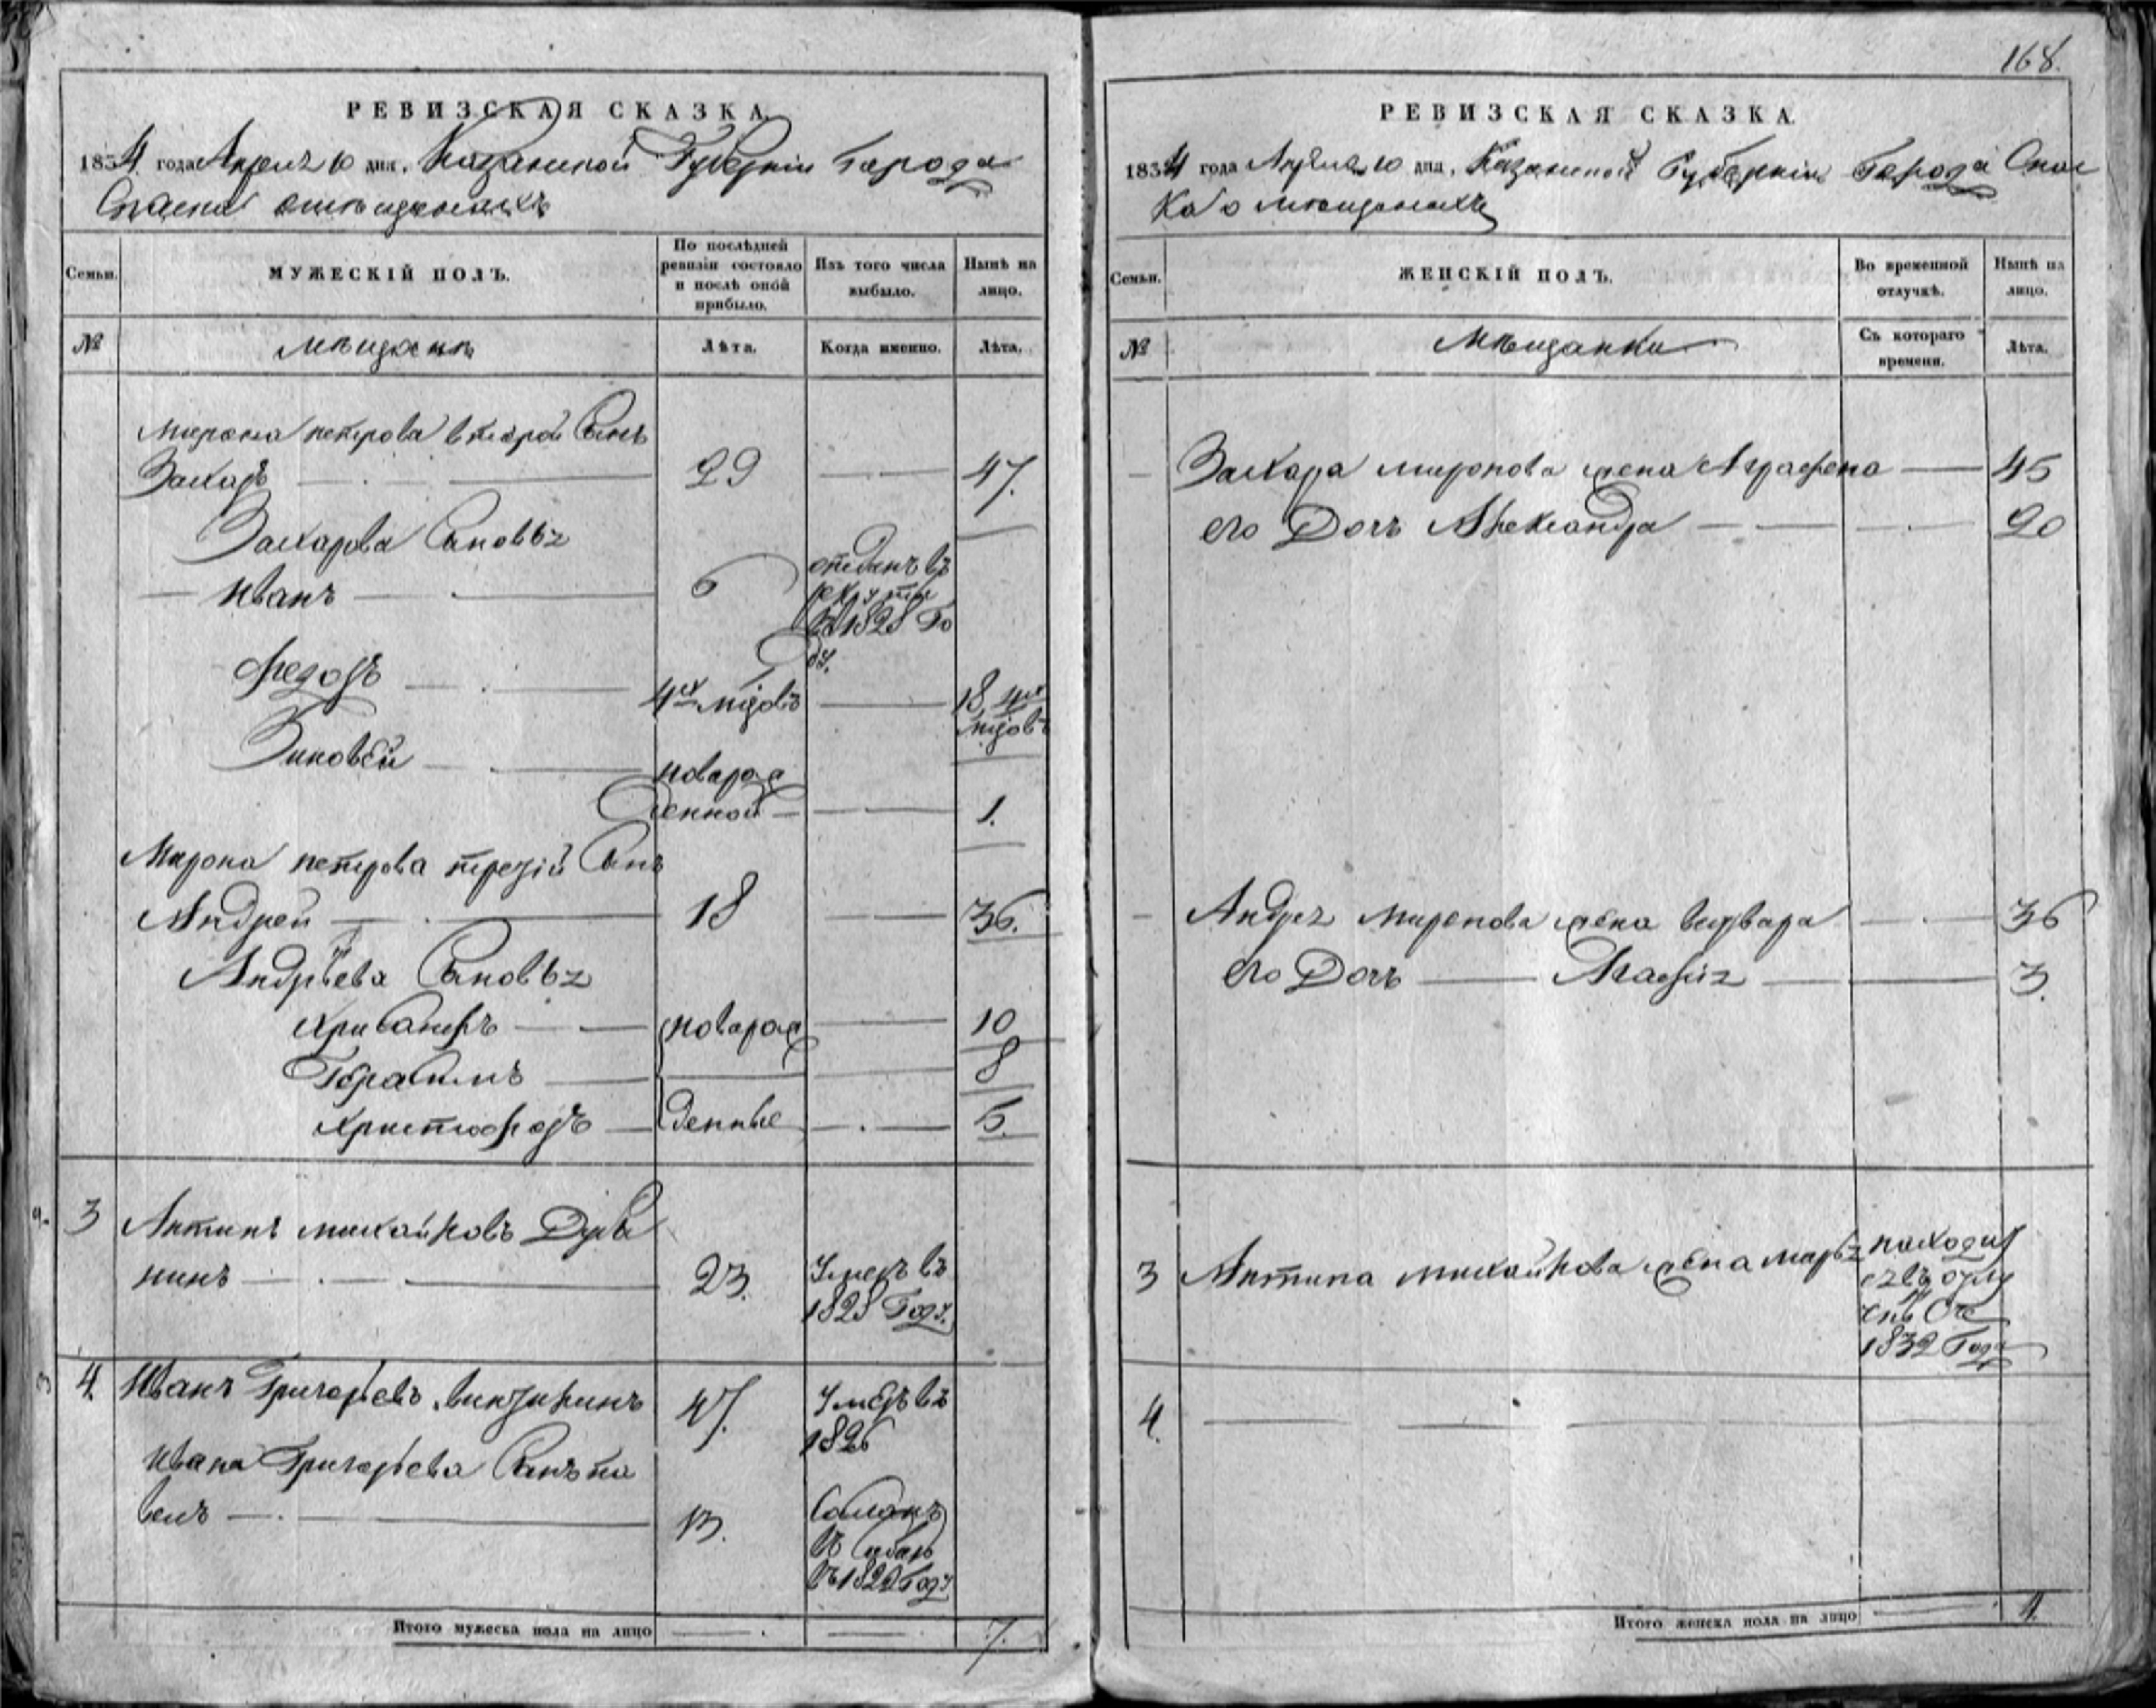 168.
РЕВИЗСКАЯ СКАЗКА
1834 года Апреля 10 дня. Казанской Губернии Города
Спаска о мещанахъ
Семьи.
МУЖЕСКІЙ ПОЛЪ.
По послѣдней ревизіи состояло и послѣ оной прибыло.
Изъ того числа выбыло.
Нынѣ на лицо.
№
мещане
Лѣта.
Когда именно.
Лѣта.
Мирона петрова второй Сынъ
Захаръ 29 47.
Захарова Сыновья
Иванъ 6 отданъ въ
рекруты
въ 1828 Го
ду.
Федоръ 4ех мѣсяцовъ 18, 4ех
мѣсяцовъ
Зиновей новорож
денной 1.
Мирона петрова третій Сынъ
Андрей 18 36.
Андрѣева Сыновья
Хрисанфъ новорож 10
Герасимъ 8
Христофоръ денные 5.
3 Антипъ михайловъ
нинъ 23. Умеръ въ
1828 Году.
4. Иванъ Григорьевъ 47. Умеръ въ
1826
Ивана Григорьева Сынъ па
велъ 13.
въ Году
Итого мужеска пола на лицо 7.
РЕВИЗСКАЯ СКАЗКА.
1834 года Апреля 10 дня. Казанской Губернии Города Спас
ка о мещанахъ
Семьи.
ЖЕНСКІЙ ПОЛЪ.
Во временной отлучкѣ.
Нынѣ на лицо.
№
Мещанки
Съ котораго времени.
Лѣта.
Захара миронова жена Аграфена 45
его Дочь Александра 20
Андрея Миронова жена варвара 36
его Дочь Агафія 3.
3 Антипа михайлова жена марья находит
ся въ отлу
чке Съ
1832 Года
4.
Итого женска пола на лицо 4.